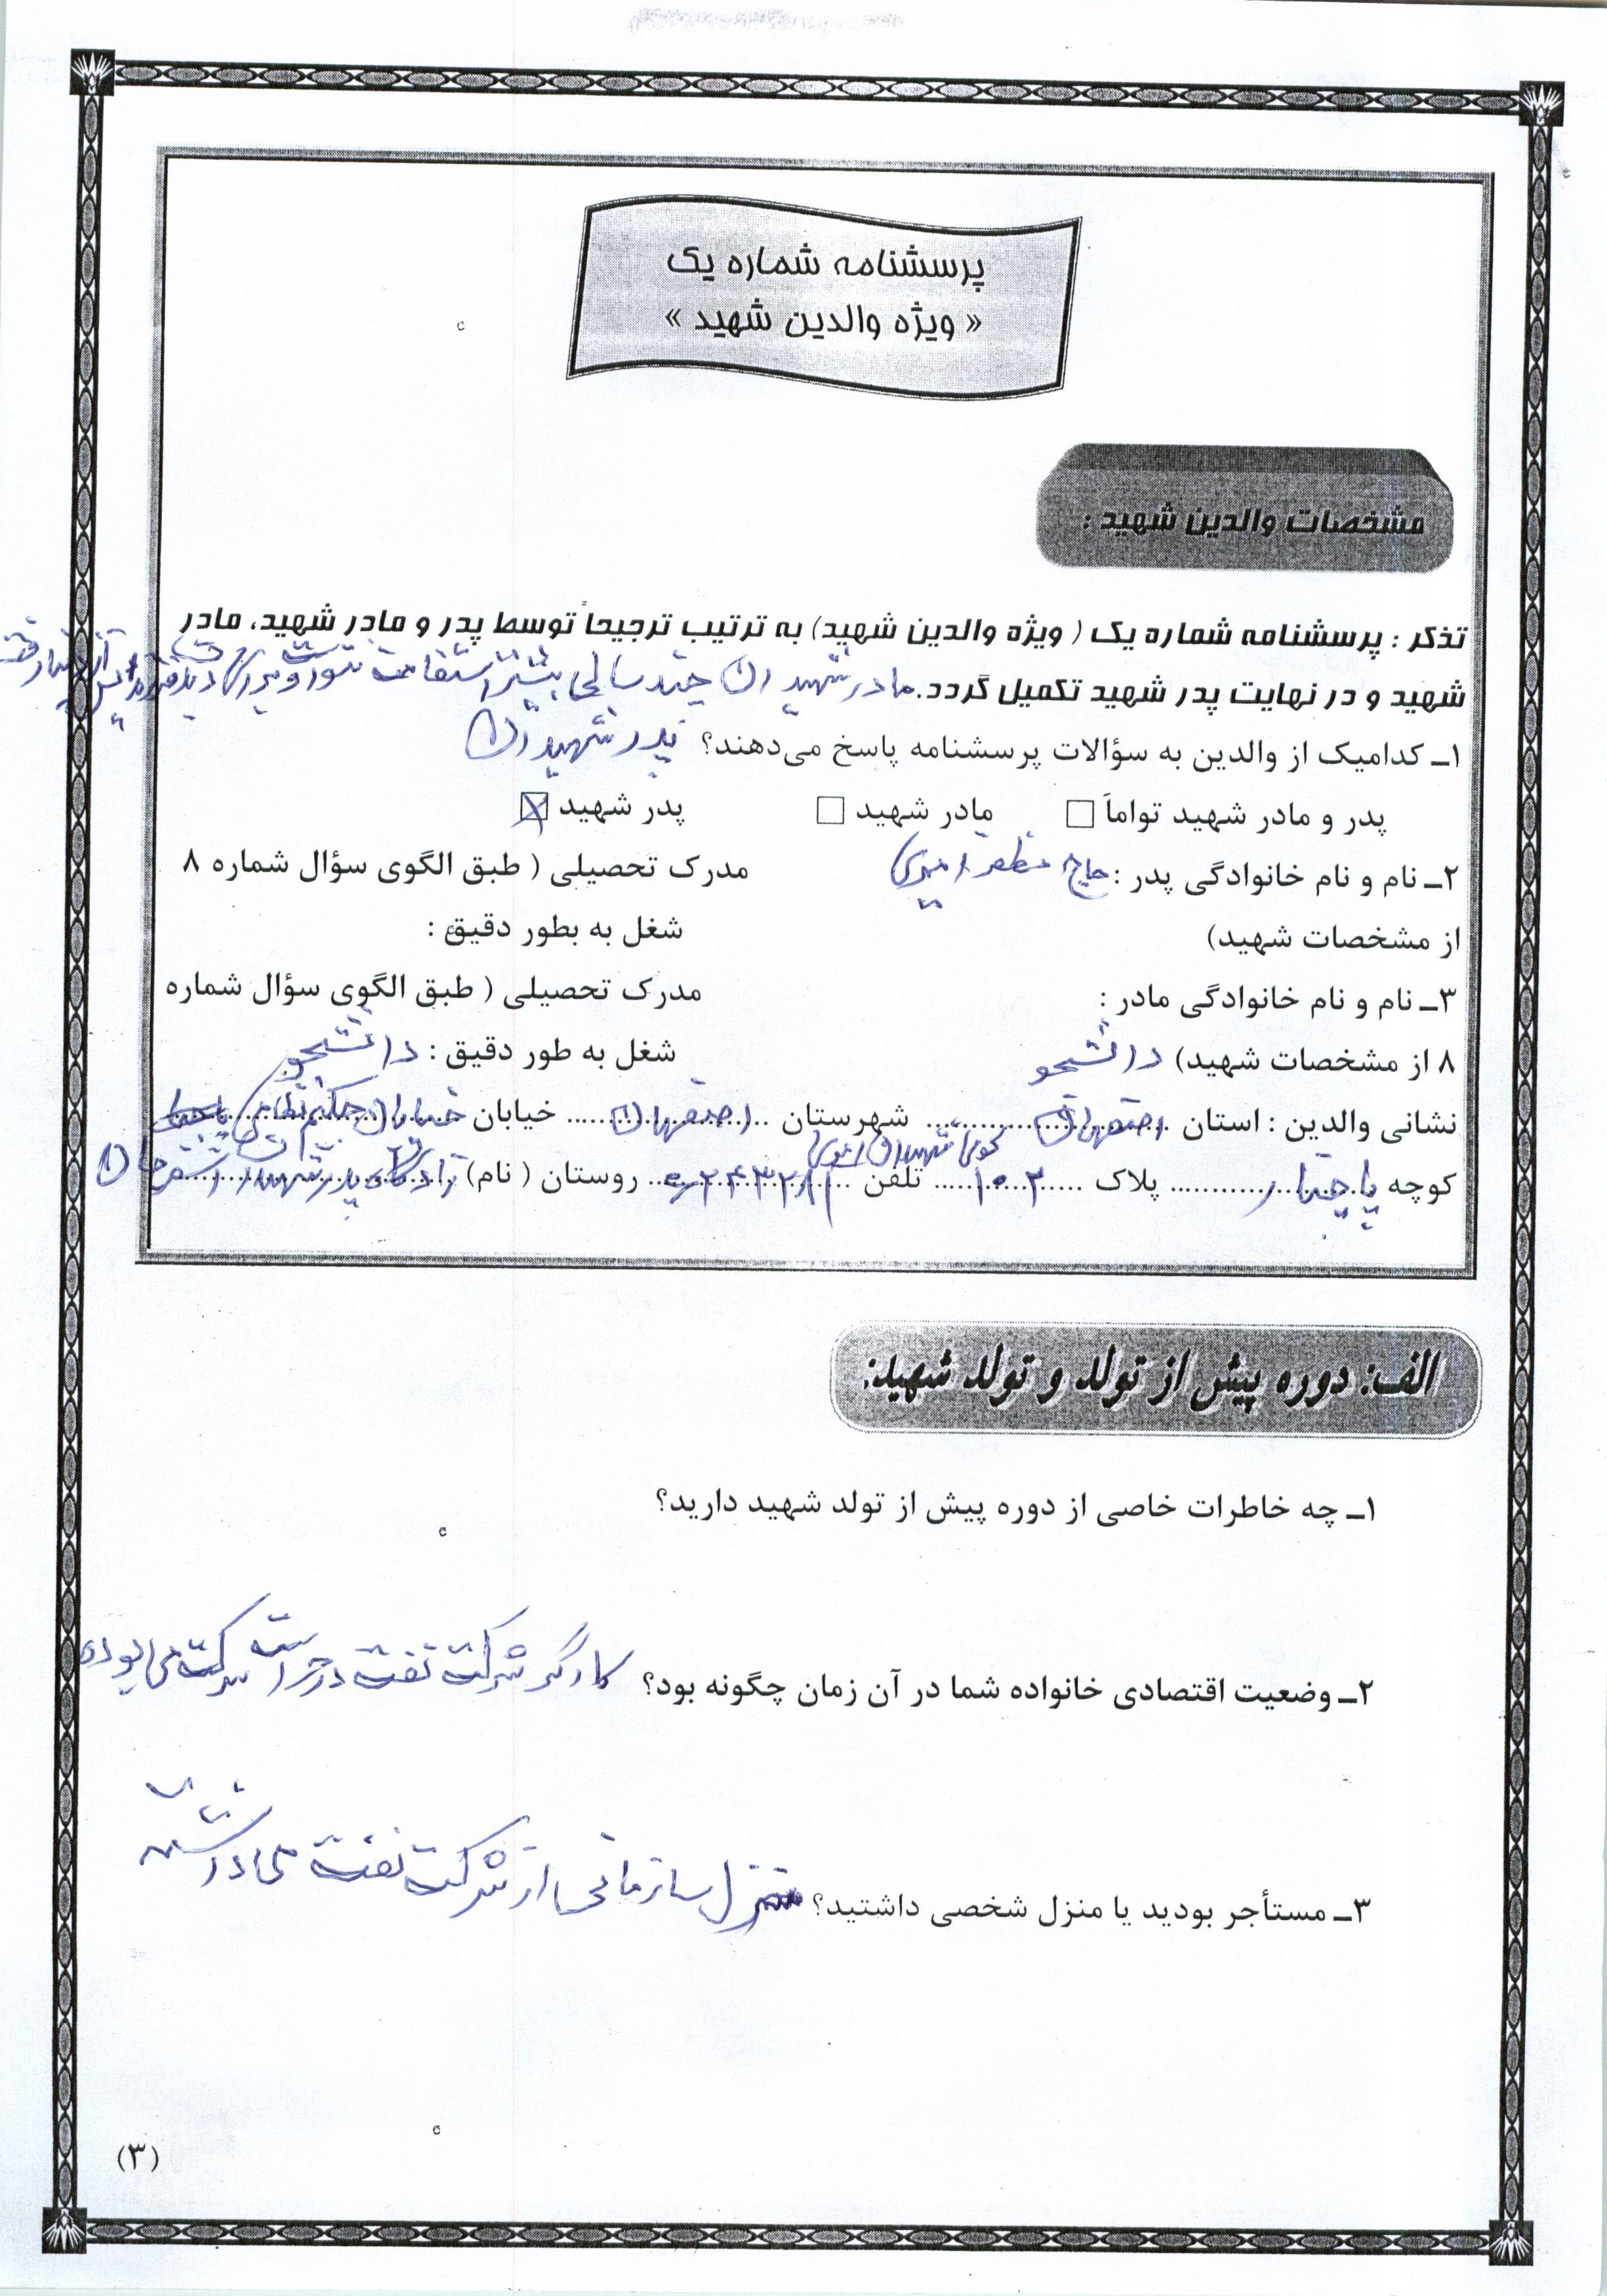 پرسشنامه شماره یک
« ویژه والدین شهید »
مشخصات والدین شهید :
تذکر : پرسشنامه شماره یک ( ویژه والدین شهید) به ترتیب ترجیحاً توسط پدر و مادر شهید، مادر
شهید و در نهایت پدر شهید تکمیل گردد. مادر شهیدان چند سالی بیشتر استقامت
۱ـ کدامیک از والدین به سؤالات پرسشنامه پاسخ می‌دهند؟ پدر شهیدان
پدر و مادر شهید تواماً □ مادر شهید □ پدر شهید ☒
۲ـ نام و نام خانوادگی پدر : حاج مظفر امیری مدرک تحصیلی ( طبق الگوی سؤال شماره ۸
از مشخصات شهید) شغل به بطور دقیق :
۳ـ نام و نام خانوادگی مادر : مدرک تحصیلی ( طبق الگوی سؤال شماره
۸ از مشخصات شهید) دانشجو شغل به طور دقیق : دانشجو
نشانی والدین : استان اصفهان شهرستان اصفهان خیابان خیابان حکیم نظامی
کوی شهیدان امیری
کوچه پاچنار پلاک ۱۰۳ تلفن روستان ( نام) زادگاه پدر شهیدان
الف: دوره پیش از تولد و تولد شهید:
۱ـ چه خاطرات خاصی از دوره پیش از تولد شهید دارید؟
۲ـ وضعیت اقتصادی خانواده شما در آن زمان چگونه بود؟ کارگر شرکت نفت در حراست شرکت می بوده
۳ـ مستأجر بودید یا منزل شخصی داشتید؟ منزل سازمانی از شرکت نفت می داشتیم
(۳)